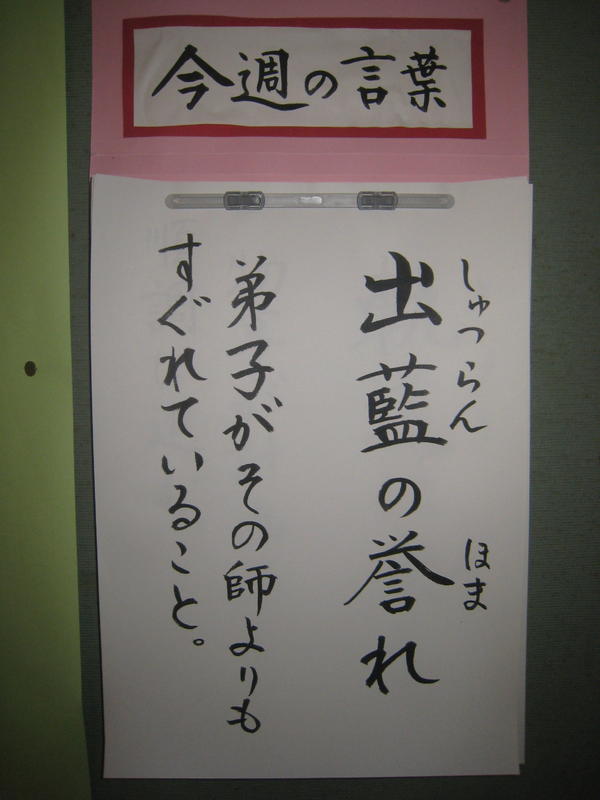 今週の言葉
しゅつらん ほま
出藍の誉れ
弟子がその師よりも
すぐれていること。